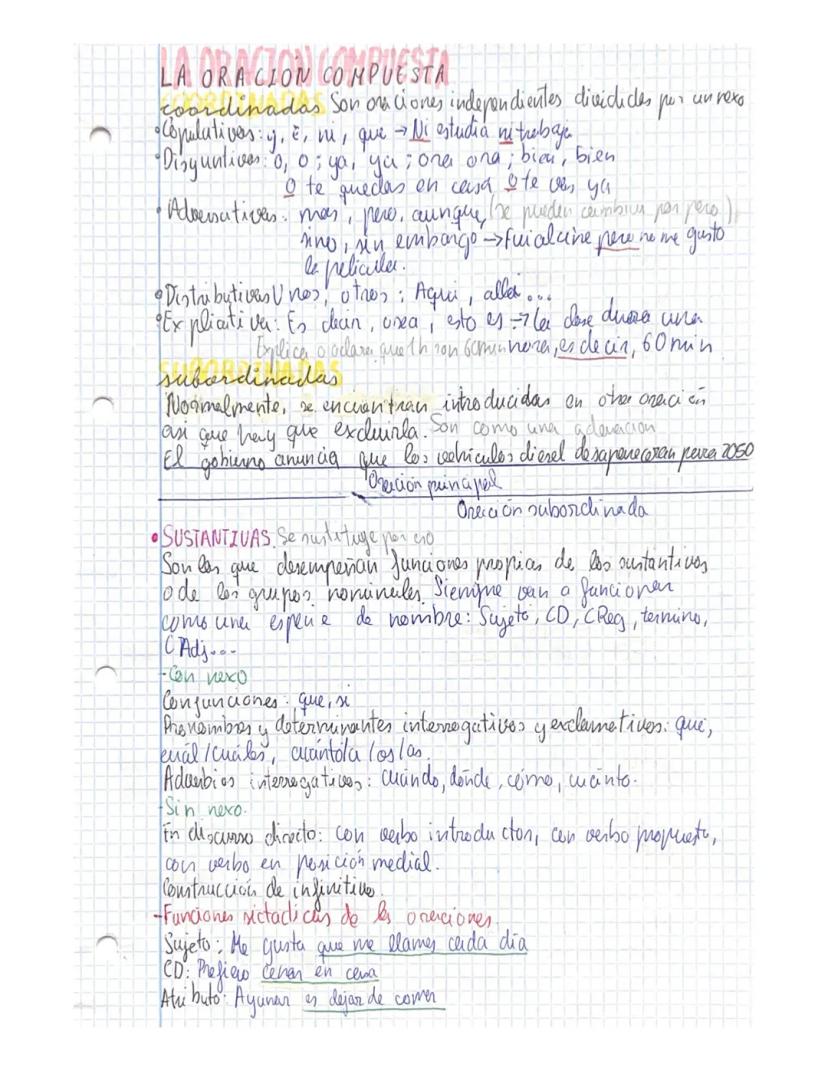 LA ORACIÓN COMPUESTA
coordinadas Son oraciones independientes divididas por un nexo
•Copulativas: y, e, ni, que → Ni estudia ni trabaja
•Disyuntivas: o, o; ya, ya; ora ora; bien, bien
O te quedas en casa o te vas ya
•Adversativas: mas, pero, aunque, (se pueden cambiar por pero)
sino, sin embargo → Fui al cine pero no me gusto
la película.
•Distributivas Unos, otros; Aquí, allá...
•Explicativa: Es decir, osea, esto es → La clase durará una
Explica o aclara que 1h son 60min hora, es decir, 60 min
subordinadas
Normalmente, se encuentran introducidas en otra oración
asi que hay que excluirla. Son como una
El gobierno anuncia que los vehículos diesel desaparecerán para 2050
Oración principal
Oración subordinada
•SUSTANTIVAS. Se sustituye por eso
Son las que desempeñan funciones propias de los sustantivos
o de los grupos nominales. Siempre van a funcionar
como una especie de nombre: Sujeto, CD, CReg, termino,
C Adj...
-Con nexo
Conjunciones: que, si
Pronombres y determinantes interrogativos y exclamativos: qué,
cuál/cuáles, cuánto/a/os/as.
Adverbios interrogativos: cuándo, dónde, cómo, cuánto.
-Sin nexo.
En discurso directo: con verbo introductor, con verbo propuesto,
con verbo en posición medial.
Construcción de infinitivo.
-Funciones sictacticas de las oraciones.
Sujeto: Me gusta que me llames cada día
CD: Prefiero cenar en casa
Atributo: Ayunar es dejar de comer